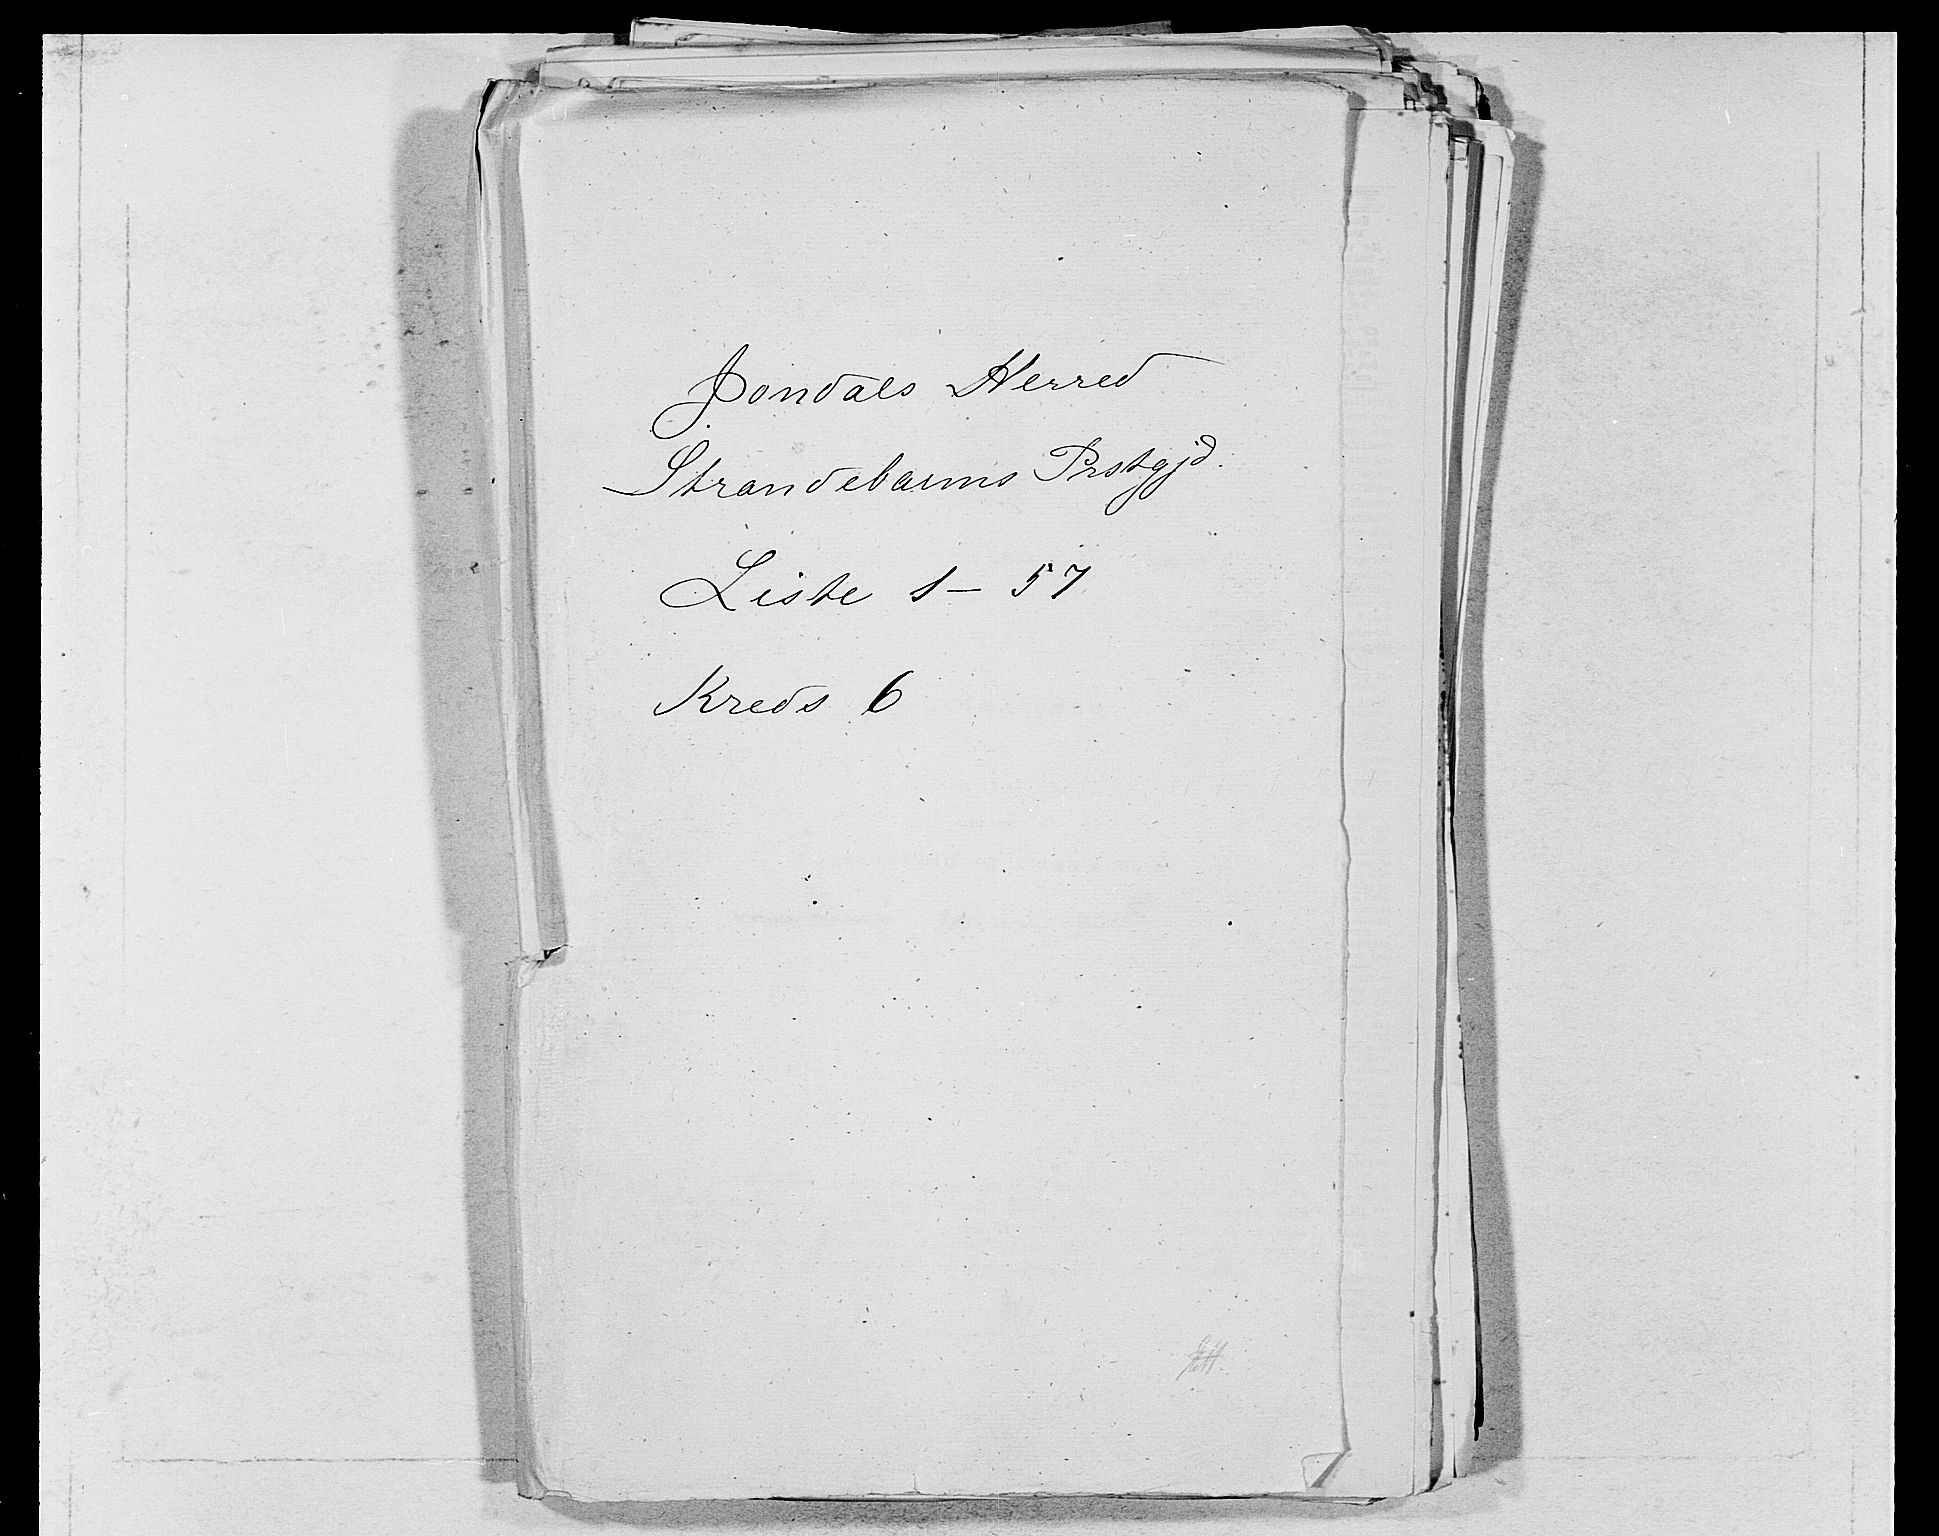 Jondals Herred
Strandebarms Prstgjd.
Liste 1 - 57
Kreds 6